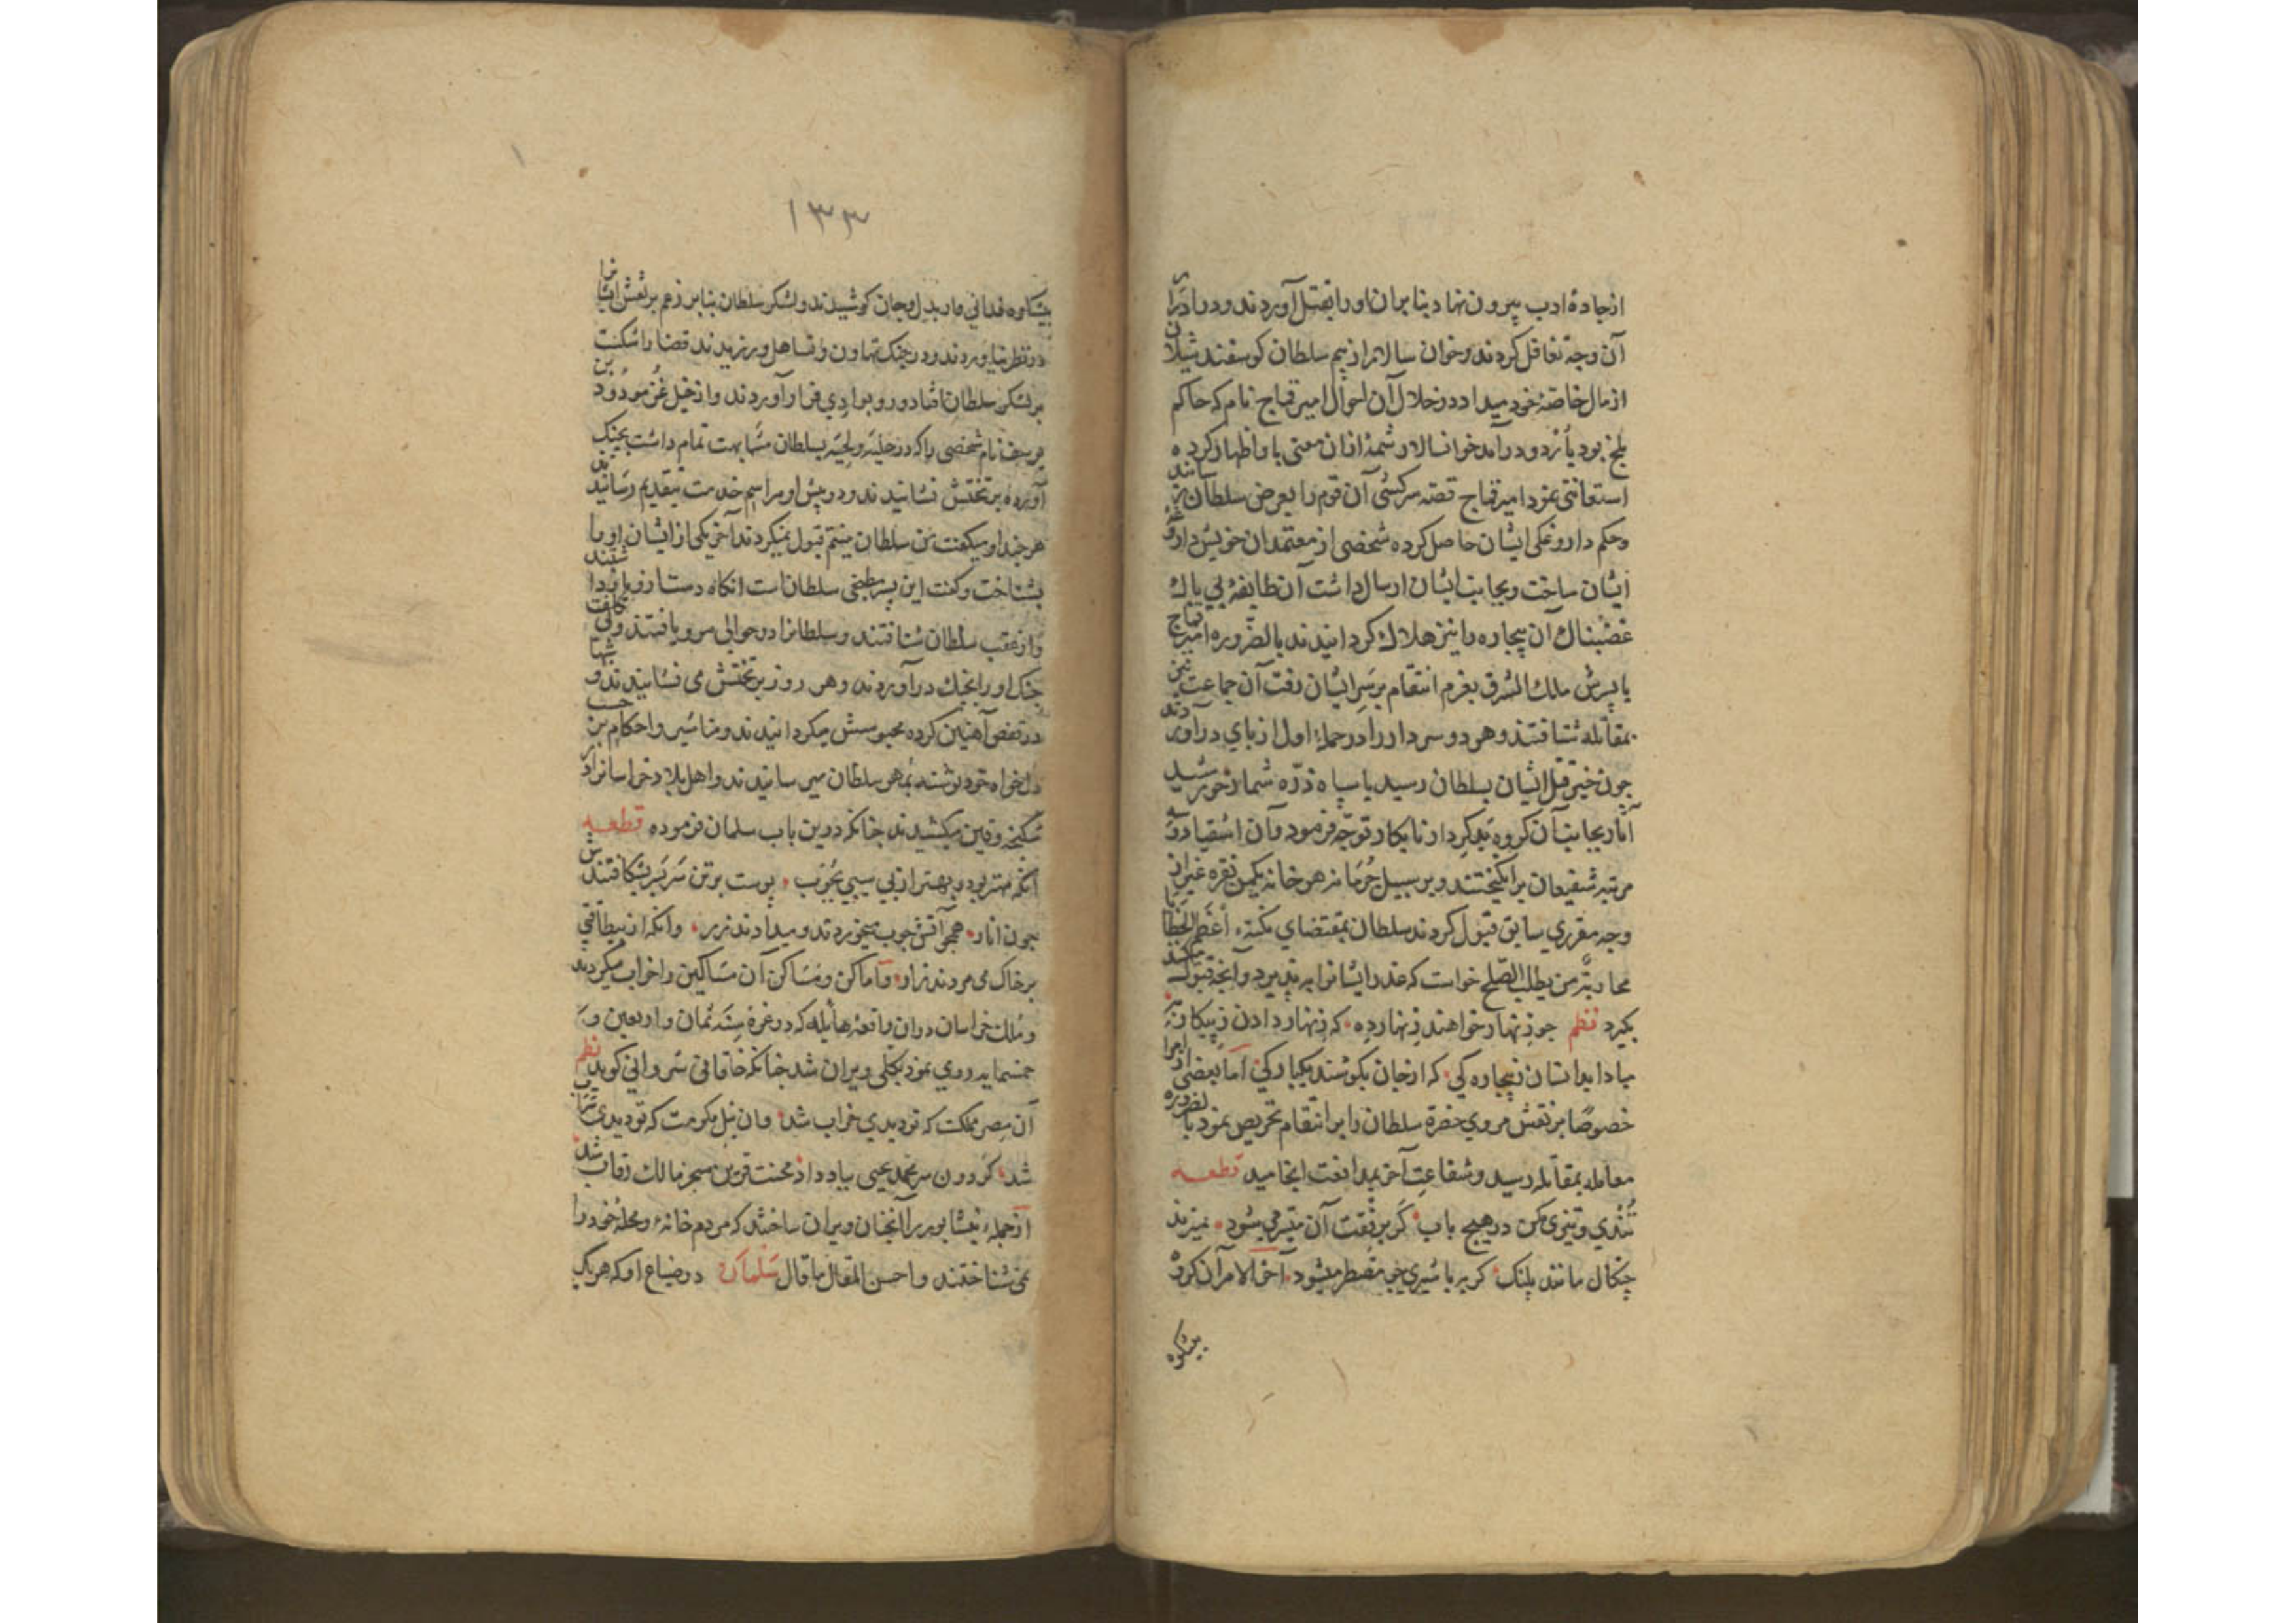 ازجادهٔ ادب بیرون نهاد بنابران اورا بقتل آوردند ودر اداء
آن وجه تغافل کردند وخوان سالار از بیم سلطان کوسفند شیلان
از مال خاصّهٔ خود میداد ودر خلال آن احوال امیر قماج نام که حاکم
بلخ بود باردو درآمد خوانسالار شمهٔ ازان معنی با و اظهار کرده
استعانتی نمود امیر قماج قصّه سرکشی آن قوم را بعرض سلطان رسانید
وحکم داروغکی ایشان حاصل کرده شخصی از معتمدان خویش داروغهٔ
ایشان ساخت وبجانب ایشان ارسال داشت آن طایفهٔ بی باك
غضبناك آن بیچاره را نیز هلاك کردانیدند بالضّروره امیر قماج
با پسرش ملك المشرق بعزم انتقام بر سر ایشان رفت آن جماعت نیز
بمقابله شتافتند وهر دو سردار را در حملهٔ اول از پای درآوردند
چون خبر قتل ایشان بسلطان رسید با سپاه ذرّه شمار خورشید
آثار بجانب آن کروه بدکردار نابکار توجّه فرمود وآن اشقیا دو سه
مرتبه شفیعان برانکیختند وبر سبیل جُرمانه هر خانه یکمن نقره غیر از
وجه مقرری سابق قبول کردند سلطان بمقتضای نکتهٔ اعظم الخطایا
محاربة من یطلب الصّلح خواست که عذر ایشانرا بپذیرد وآنچه قبول میکنند
بکیرد نظم چو زنهار خواهند زنهار ده که زنهار دادن ز پیکار به
مبادا بدانسان ز بیچاره کی که از جان بکوشند یکبارکی اما بعضی امرا
خصوصًا برنقش مروی حضرة سلطان را بر انتقام تحریص نمود بالضروره
معامله بمقابله رسید وشفاعت آخر بمدافعت انجامید قطعه
تُندی وتیزی مکن در هیچ باب کر برفعت آن میسر میشود نیز مزند
چنکال مانند پلنک کربه با شیری چو مضطر میشود آخر الامر آن کروه
بیشکوه
۱۳۳
بیشکوه فدائی وار بدل وجان کوشیدند ولشکر سلطان بنابر زعم برنقش ایشانرا
در نظر نیاوردند ودر جنک تهاون وتساهل ورزیدند قضا را شکست
بر لشکر سلطان افتاد ورو بوادی فرار آوردند واز خیل غُز مودود بن
یوسف نام شخصی را که در حلیه ولحیه بسلطان مشابهت تمام داشت بچنک
آورده بر تختش نشانیدند ودر پیش او مراسم خدمت بتقدیم رسانیدند
هر چند او میکفت من سلطان نیستم قبول نمیکردند آخر یکی از ایشان او را
بشناخت وکفت این پسر مطبخی سلطان است انکاه دست ازو باز داشتند
واز عقب سلطان شتافتند وسلطانرا در حوالی مرو یافتند وبی کلفت
جنک اورا بچنك درآوردند وهر روز بر تختش می نشانیدند وشبها
در قفص آهنین کرده محبوسش میکردانیدند ومناشیر واحکام بر حسب
دلخواه خود نوشته بمُهر سلطان میرسانیدند واهل بلاد خراسانرا در
شکنجه وقین میکشیدند چنانکه درین باب سلمان فرموده قطعه
آنکه مهتر بود وبهتر از پی سیبی بچوب پوست بر تن سربسر بشکافتندش
چون انار همچو آتش چوب میخوردند ومیدادند زر وآنکه از بیطاقتی
بر خاك می مردند زار واماکن ومساکن آن مساکین را خراب میکردند
ومُلك خراسان دران واقعهٔ هایله که در غرهٔ سنه ثمان واربعین و
خمسمایه روی نمود بکلّی ویران شد چنانکه خاقانی شروانی کوید نظم
آن مصر مملکت که تو دیدی خراب شد وان نیل مکرمت که تو دیدی سراب
شد کردون سر محمد یحیی بباد داد محنت قرین سنجر مالك رقاب شد
از جمله نیشابور را آنچنان ویران ساختند که مردم خانه ومحلهٔ خود را
نمی شناختند واحسن المقال ما قال سلمان در ضیاع او که هر یك